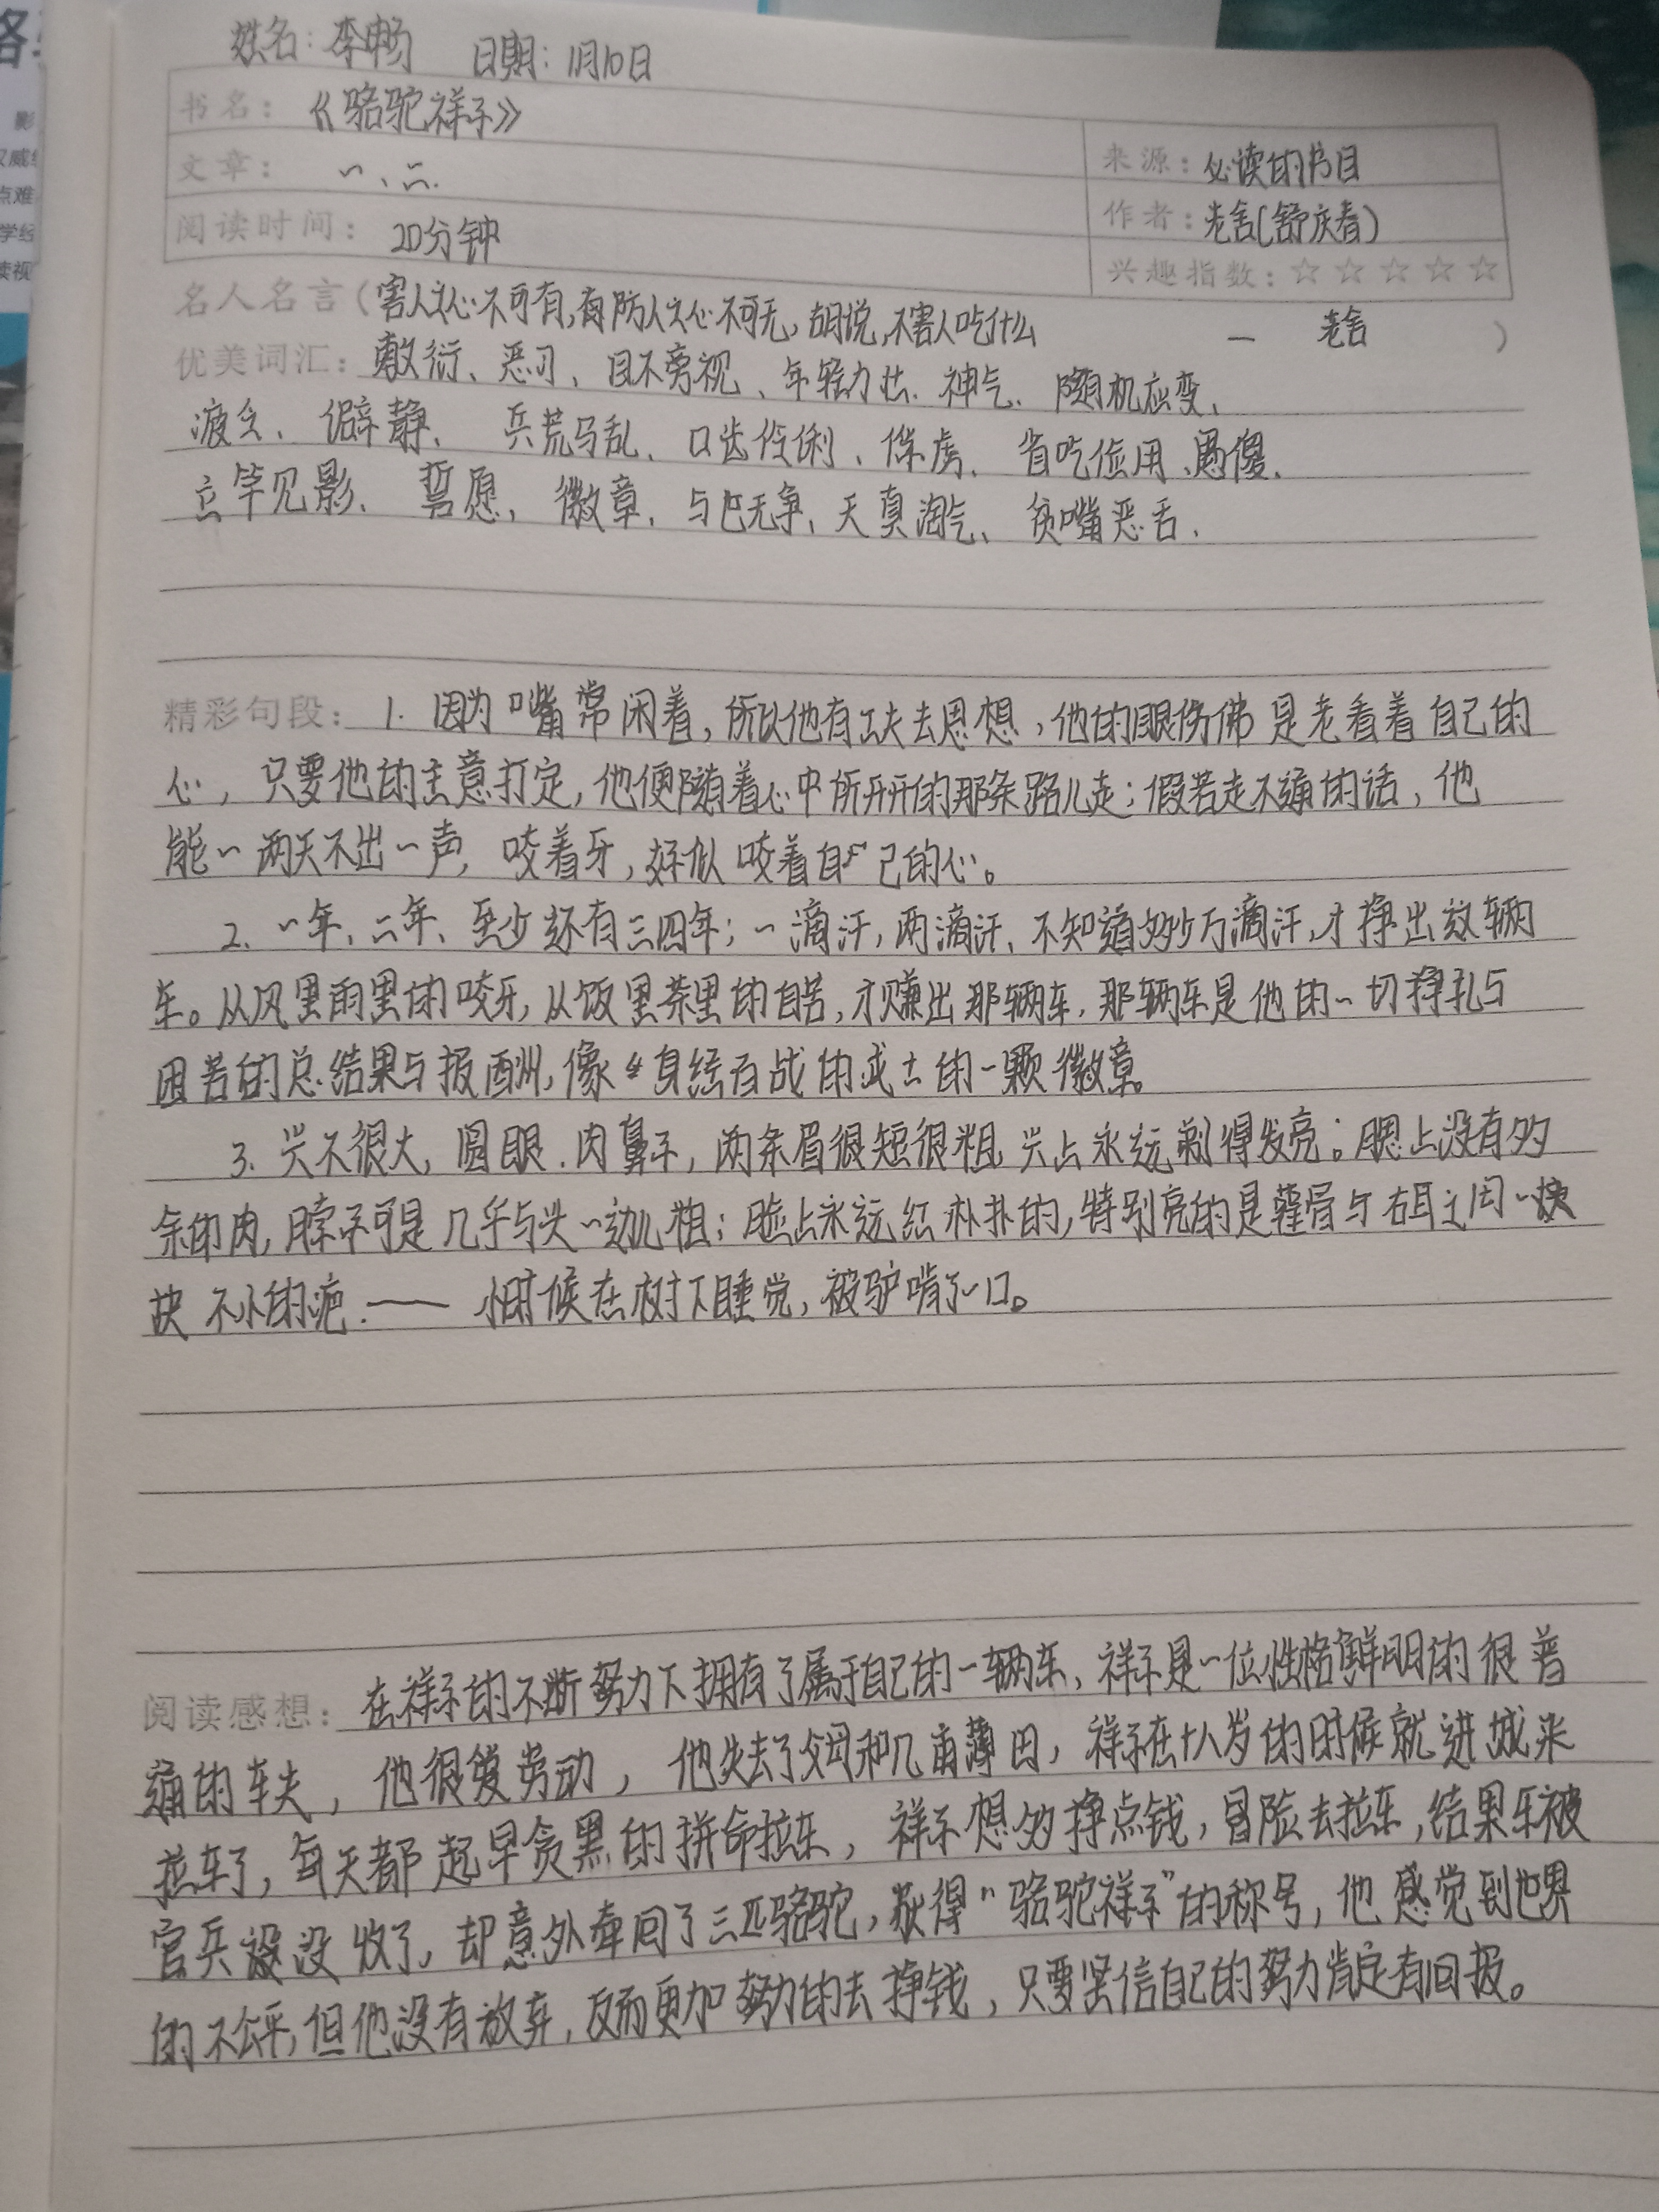 姓名：李畅 日期：1月10日
书名：《骆驼祥子》
文章：一、二.
来源：必读的书目
阅读时间：20分钟
作者：老舍(舒庆春)
兴趣指数：☆☆☆☆☆
名人名言（害人之心不可有,有防人之心不可无,胡说,不害人吃什么 — 老舍 ）
优美词汇：敷衍、恶习、目不旁视、年轻力壮、神气、随机应变、
疲乏、僻静、兵荒马乱、口齿伶俐、保虏、省吃俭用、愚傻、
立竿见影、誓愿、徽章、与世无争、天真淘气、贫嘴恶舌、
精彩句段：1. 因为嘴常闲着,所以他有工夫去思想,他的眼仿佛是老看着自己的
心,只要他的主意打定,他便随着心中所开开的那条路儿走;假若走不通的话,他
能一两天不出一声,咬着牙,好似咬着自己的心。
2、一年、二年、至少还有三四年;一滴汗,两滴汗、不知道多少万滴汗,才挣出放辆
车。从风里雨里的咬牙,从饭里茶里的自苦,才赚出那辆车,那辆车是他的一切挣扎与
困苦的总结果与报酬,像身经百战的武士的一颗徽章。
3、头不很大,圆眼、肉鼻子,两条眉很短很粗,头上永远剃得发亮。腮上没有多
余的肉,脖子可是几乎与头一边儿粗;脸上永远红扑扑的,特别亮的是颧骨与右耳之间一块
块不小的疤.——小时候在树下睡觉,被驴啃了一口。
阅读感想：在祥子的不断努力下拥有了属于自己的一辆车,祥子是一位性格鲜明的很普
通的车夫,他很爱劳动,他失去了父母和几亩薄田,祥子在十八岁的时候就进城来
拉车了,每天都起早贪黑的拼命拉车,祥子想多挣点钱,冒险去拉车,结果车被
官兵没没收了,却意外牵回了三匹骆驼,获得"骆驼祥子"的称号,他感觉到世界
的不公平,但他没有放弃,反而更加努力的去挣钱,只要坚信自己的努力肯定有回报。